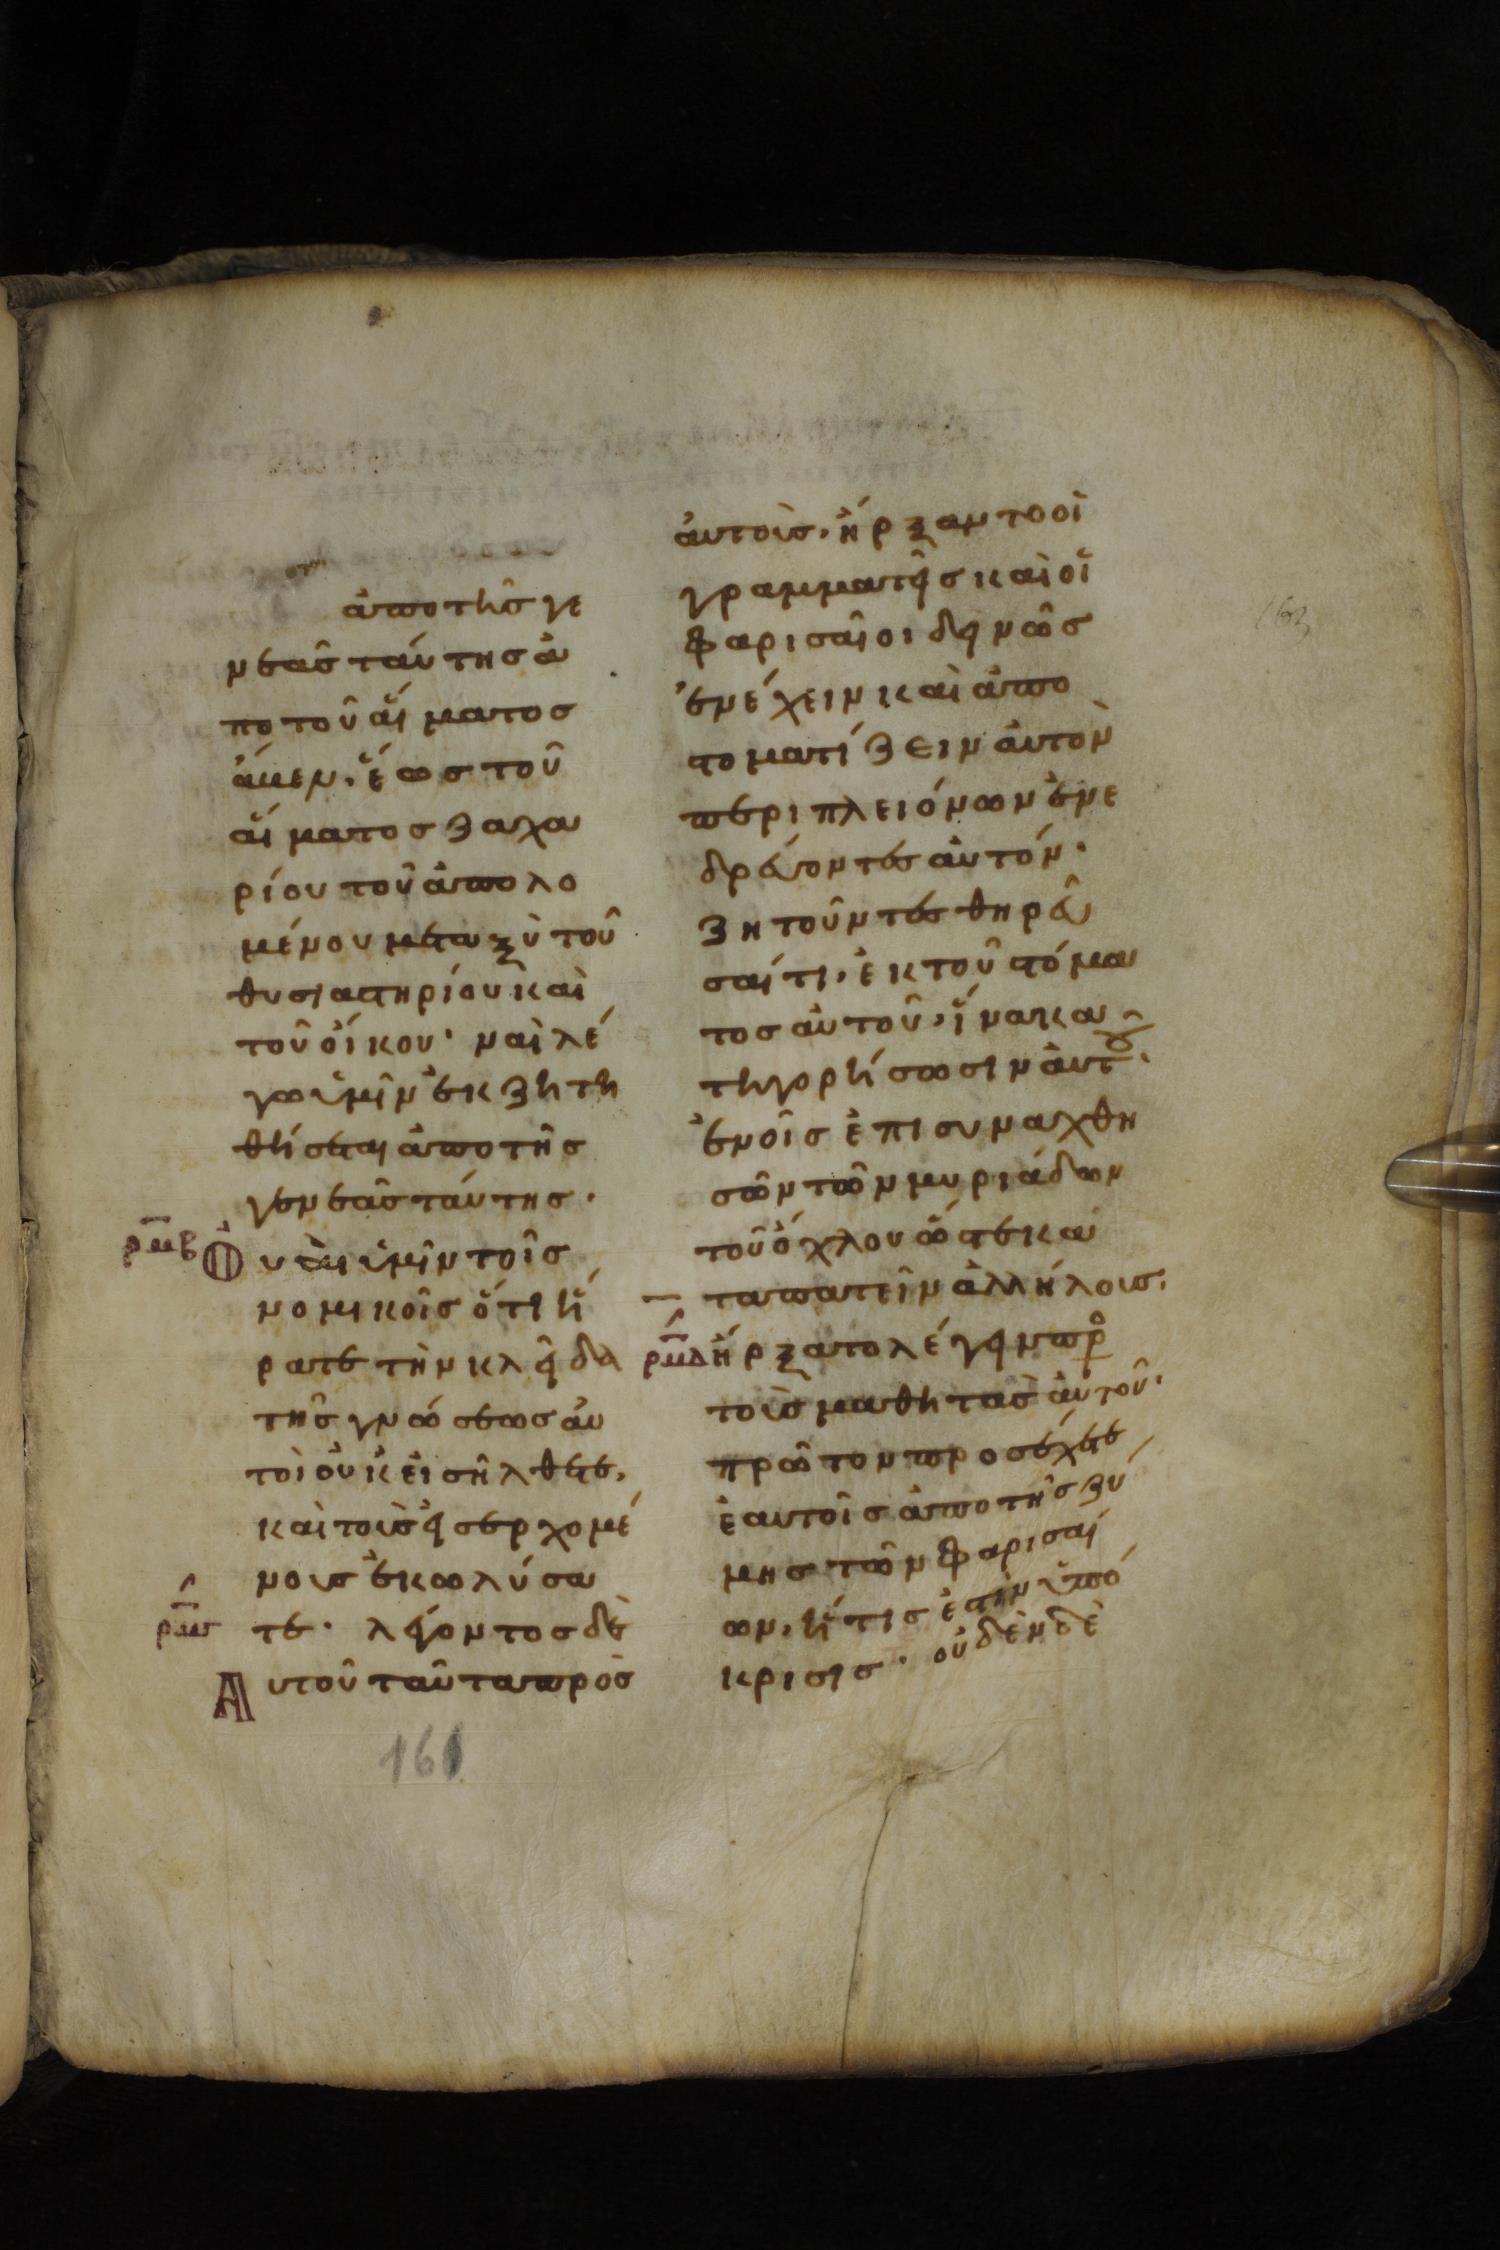 ἀπο τῆς γε
νεᾶς ταύτης ἀ
πο τοῦ αἵματος
ἄμελ. ἕως τοῦ
αἵματος ζαχα
ρίου τοῦ ἀπολο
μένου μεταξὺ τοῦ
θυσιαστηρίου καὶ
τοῦ οἴκου· ναὶ λέ
γω ὑμῖν ἐκζητη
θήσεται ἀπο τῆς
γενεᾶς ταύτης·
ρμβ Ο υαὶ ὑμῖν τοῖς
νομικοῖς ὅτι ἤ
ρατε τὴν κλεῖδα
τῆς γνώσεως αὐ
τοὶ οὐκ εἰσήλθετε,
καὶ τοὺς εἰσερχομέ
νους ἐκωλύσα
τε· λέγοντος δὲ
Α υτοῦ ταῦτα πρὸς
161
ἀυτοὺς, ἤρξαντο οἱ
γραμματεῖς καὶ οἱ
φαρισαῖοι δεινῶς
ἐνέχειν καὶ ἀπο
στοματίζειν ἀυτὸν
περι πλειόνων ἐνε
δρέυοντες ἀυτόν·
ζητοῦντες θηρεῦ
σαί τι, ἐκ τοῦ στόμα
τος ἀυτοῦ, ἵνα κα
τηγορήσωσιν ἀυτοῦ·
ἐν οἷς ἐπισυναχθη
σῶν τῶν μυριάδων
τοῦ ὄχλου ὥστε κα
ταπατεῖν ἀλλήλους·
ρμδ ἤρξατο λέγειν πρ
τοὺς μαθητὰς ἀυτοῦ·
πρῶτον προσέχετε
ἑαυτοῖς ἀπο τῆς ζύ
μης τῶν φαρισαί
ων, ἥτις ἐστὶν ὑπό
κρισις· οὐδὲν δὲ